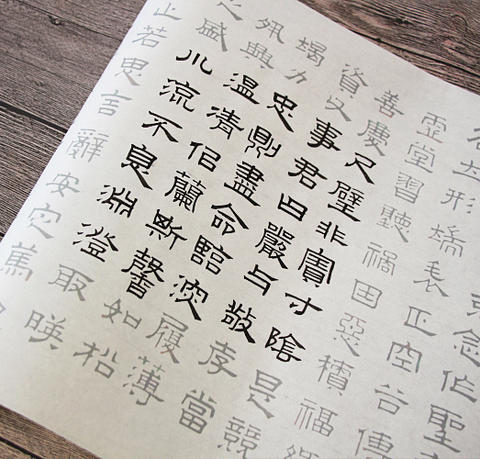 念作聖
名立形端表正空谷傳
虛堂習聽禍因惡積福緣
善慶尺璧非寶寸陰是競
資父事君曰嚴与敬孝當
竭力忠則盡命臨深履薄
夙興温清佀蘭斯馨如松
之盛川流不息淵澄取暎
止若思言辭安定篤